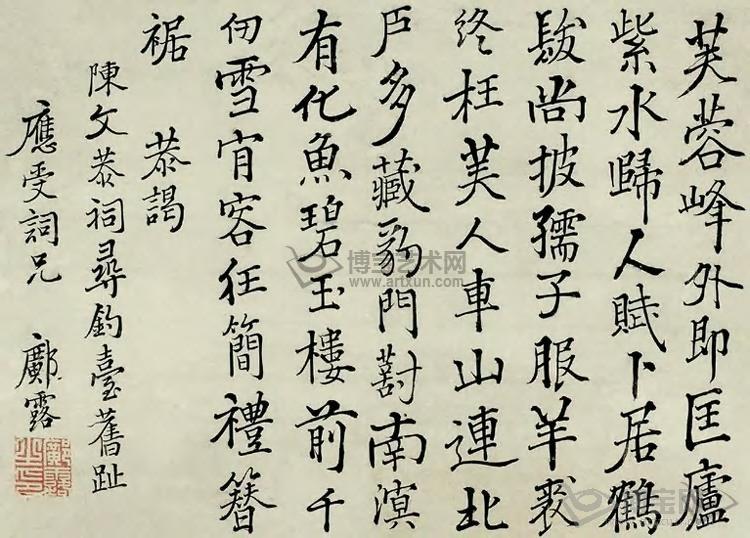 芙蓉峰外即匡廬
紫水歸人賦卜居鶴
髮尚披孺子服羊裘
終枉美人車山連北
戶多藏豹門對南溟
有化魚碧玉樓前千
仞雪肎容狂簡禮簪
裾 恭謁
陳文恭祠尋釣臺舊趾
應受詞兄 鄺露
博宝艺术网
www.artxun.com